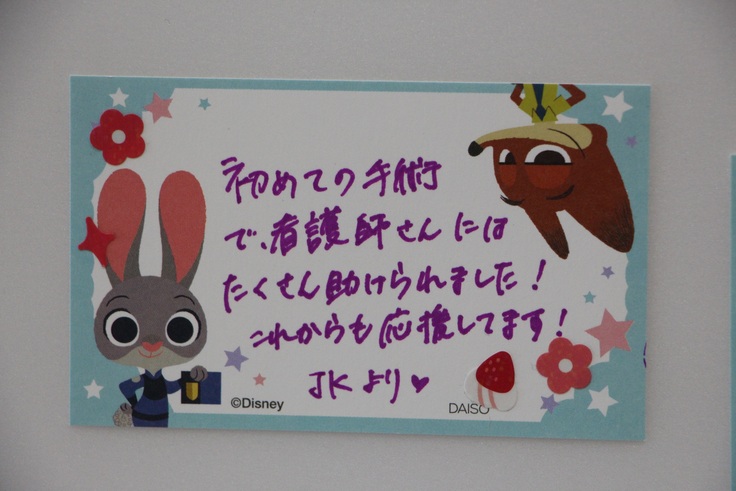 初めての手術
で、看護師さんには
たくさん助けられました!
これからも応援してます!
JKより♥
©Disney
DAISO